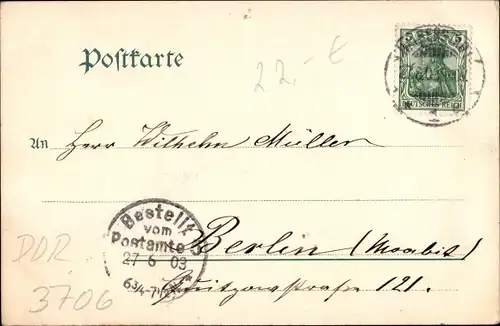 Postkarte
22.-€
5 5
DEUTSCHES REICH
An Herr Wilhelm Müller
Bestellt
vom
Postamte
27 6 03
6¾-7½
Berlin (Moabit)
Quitzowstraße 121.
DDR
3706